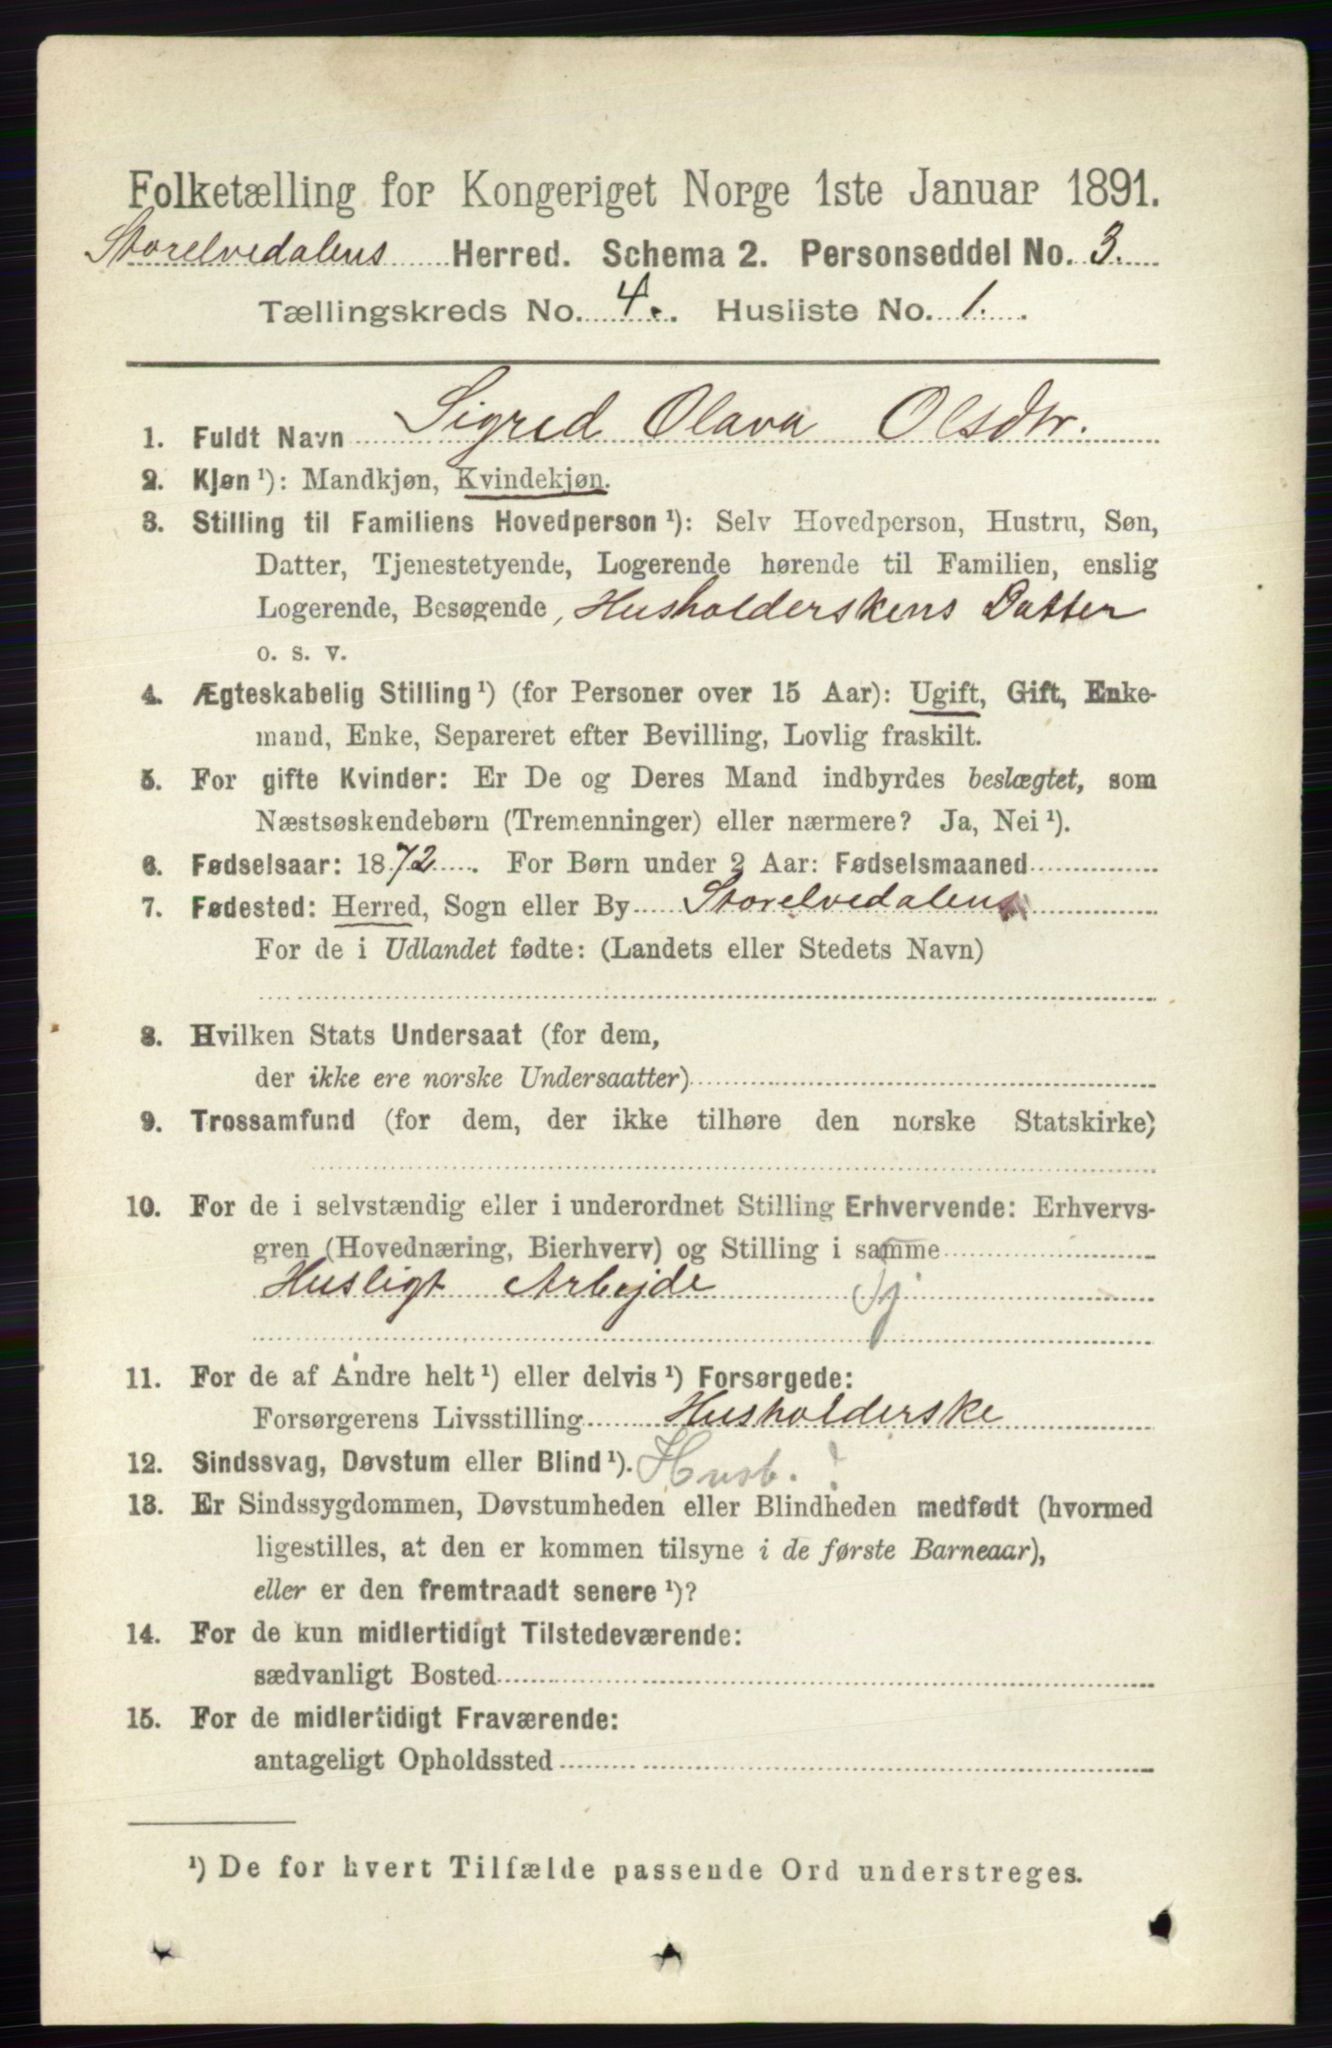 Folketælling for Kongeriget Norge 1ste Januar 1891.
Storelvedalens Herred. Schema 2. Personseddel No. 3.
Tællingskreds No. 4. Husliste No. 1.
1. Fuldt Navn Sigred Olava Olsdtr.
2. Kjøn ¹): Mandkjøn, Kvindekjøn.
3. Stilling til Familiens Hovedperson ¹): Selv Hovedperson, Hustru, Søn,
Datter, Tjenestetyende, Logerende hørende til Familien, enslig
Logerende, Besøgende, Husholderskens Datter
o. s. v.
4. Ægteskabelig Stilling ¹) (for Personer over 15 Aar): Ugift, Gift, Enke-
mand, Enke, Separeret efter Bevilling, Lovlig fraskilt.
5. For gifte Kvinder: Er De og Deres Mand indbyrdes beslægtet, som
Næstsøskendebørn (Tremenninger) eller nærmere? Ja, Nei ¹).
6. Fødselsaar: 1872. For Børn under 2 Aar: Fødselsmaaned
7. Fødested: Herred, Sogn eller By Storelvedalens
For de i Udlandet fødte: (Landets eller Stedets Navn)
8. Hvilken Stats Undersaat (for dem,
der ikke ere norske Undersaatter)
9. Trossamfund (for dem, der ikke tilhøre den norske Statskirke)
10. For de i selvstændig eller i underordnet Stilling Erhvervende: Erhvervs-
gren (Hovednæring, Bierhverv) og Stilling i samme
Husligt Arbejde
11. For de af Andre helt ¹) eller delvis ¹) Forsørgede:
Forsørgerens Livsstilling Husholderske
12. Sindssvag, Døvstum eller Blind ¹). Husb. !
13. Er Sindssygdommen, Døvstumheden eller Blindheden medfødt (hvormed
ligestilles, at den er kommen tilsyne i de første Barneaar),
eller er den fremtraadt senere ¹)?
14. For de kun midlertidigt Tilstedeværende:
sædvanligt Bosted
15. For de midlertidigt Fraværende:
antageligt Opholdssted
¹) De for hvert Tilfælde passende Ord understreges.